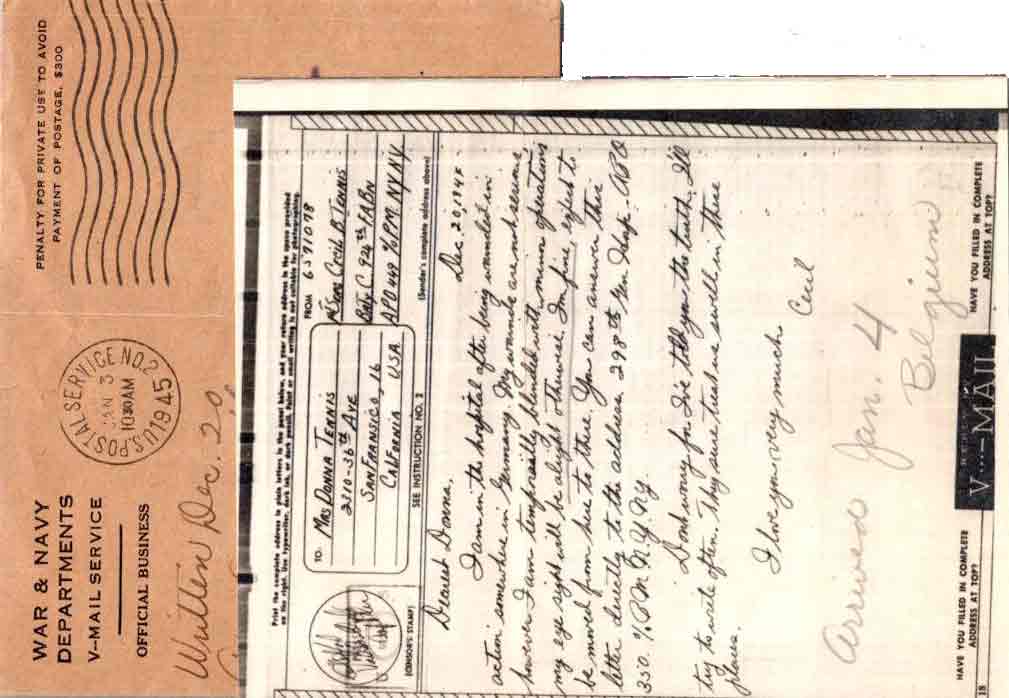 WAR & NAVY
DEPARTMENTS
V--MAIL SERVICE
OFFICIAL BUSINESS
U.S. POSTAL SERVICE NO. 2
JAN 3
1030 AM
1945
PENALTY FOR PRIVATE USE TO AVOID
PAYMENT OF POSTAGE, $300
Written Dec. 20
Print the complete address in plain letters in the panel below, and your return address in the space provided
on the right. Use typewriter, dark ink, or dark pencil. Faint or small writing is not suitable for photographing.
TO:
MRS DONNA TENNIS
2310-36th AVE
SAN FRANSICO, 16
CALIFORNIA, USA.
FROM 6571078
Cecil B. TENNIS
Bty C 924th FA Bn
APO 449 % PM NY NY
(CENSOR'S STAMP)
SEE INSTRUCTION NO. 2
(Sender's complete address above)
Dec. 20, 194
Dearest Donna,
I am in the hospital after being wounded in
action somewhere in Germany. My wounds are not serious,
however I am temporarily blinded with minor operations
my eye sight will be alright. Otherwise I'm fine, expect to
be moved from here to there. You can answer this
letter directly to the address, 298th Gen Hosp - APO
350 % P.M. N.Y. N.Y.
Don't worry for I've told you the truth. I'll
try to write often. They sure treat us swell in these
places.
I love you very much
Cecil
arrived Jan. 4
Belgium
HAVE YOU FILLED IN COMPLETE
ADDRESS AT TOP?
V---MAIL
HAVE YOU FILLED IN COMPLETE
ADDRESS AT TOP?